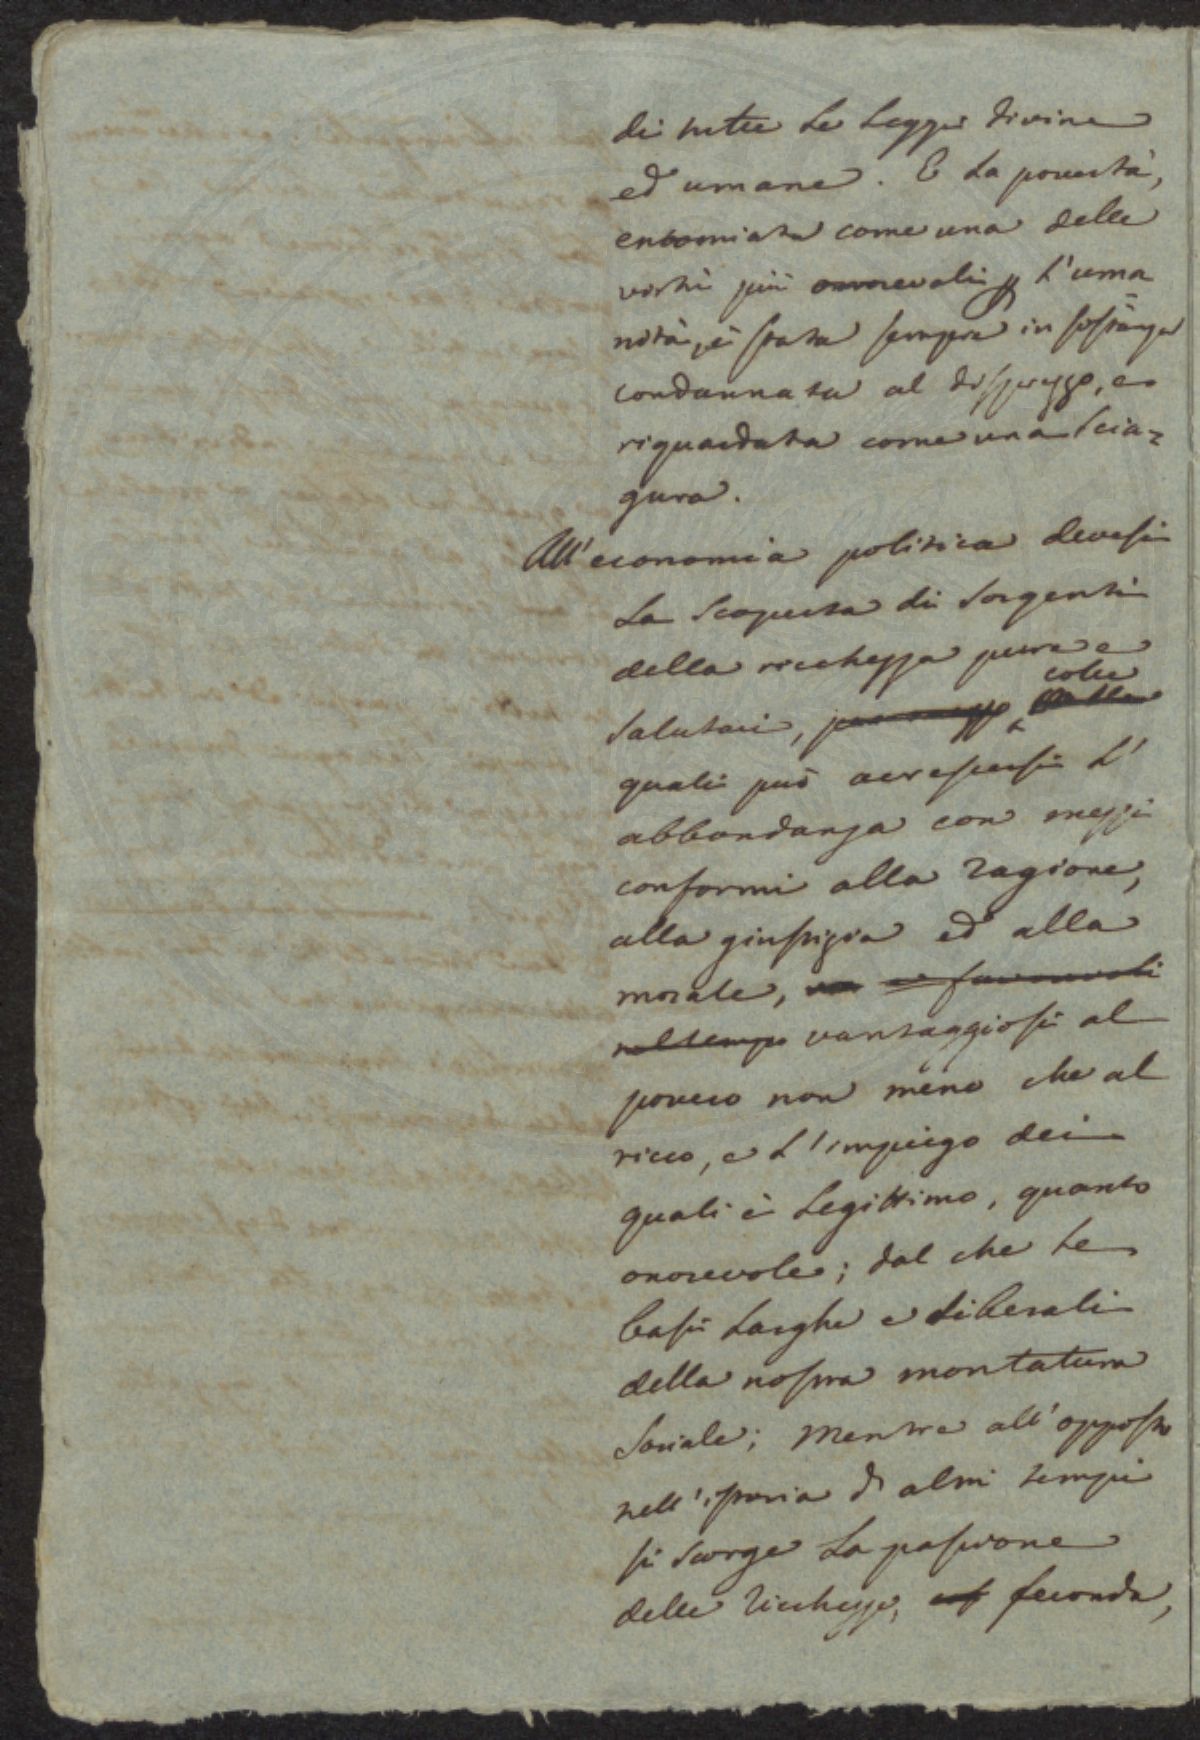 di tutte le leggi divine
ed umane. E la povertà,
encomiata come una delle
virtù più onorevoli p l'uma
nità, è stata sempre in sostanza
condannata al disprezzo, e
riguardata come una scia=
gura.
All'economia politica devesi
la scoperta di sorgenti
della ricchezza pure e
colle
salutari,
quali può accrescersi l'
abbondanza con mezzi
conformi alla ragione,
alla giustizia ed alla
morale, favorevoli
nel tempo vantaggiosi al
povero non meno che al
ricco, e l'impiego dei
quali è legittimo, quanto
onorevole; dal che le
basi larghe e liberali
della nostra montatura
sociale; mentre all'opposto
nell'istoria di altri tempi
si scorge la passione
delle ricchezze, feconda,